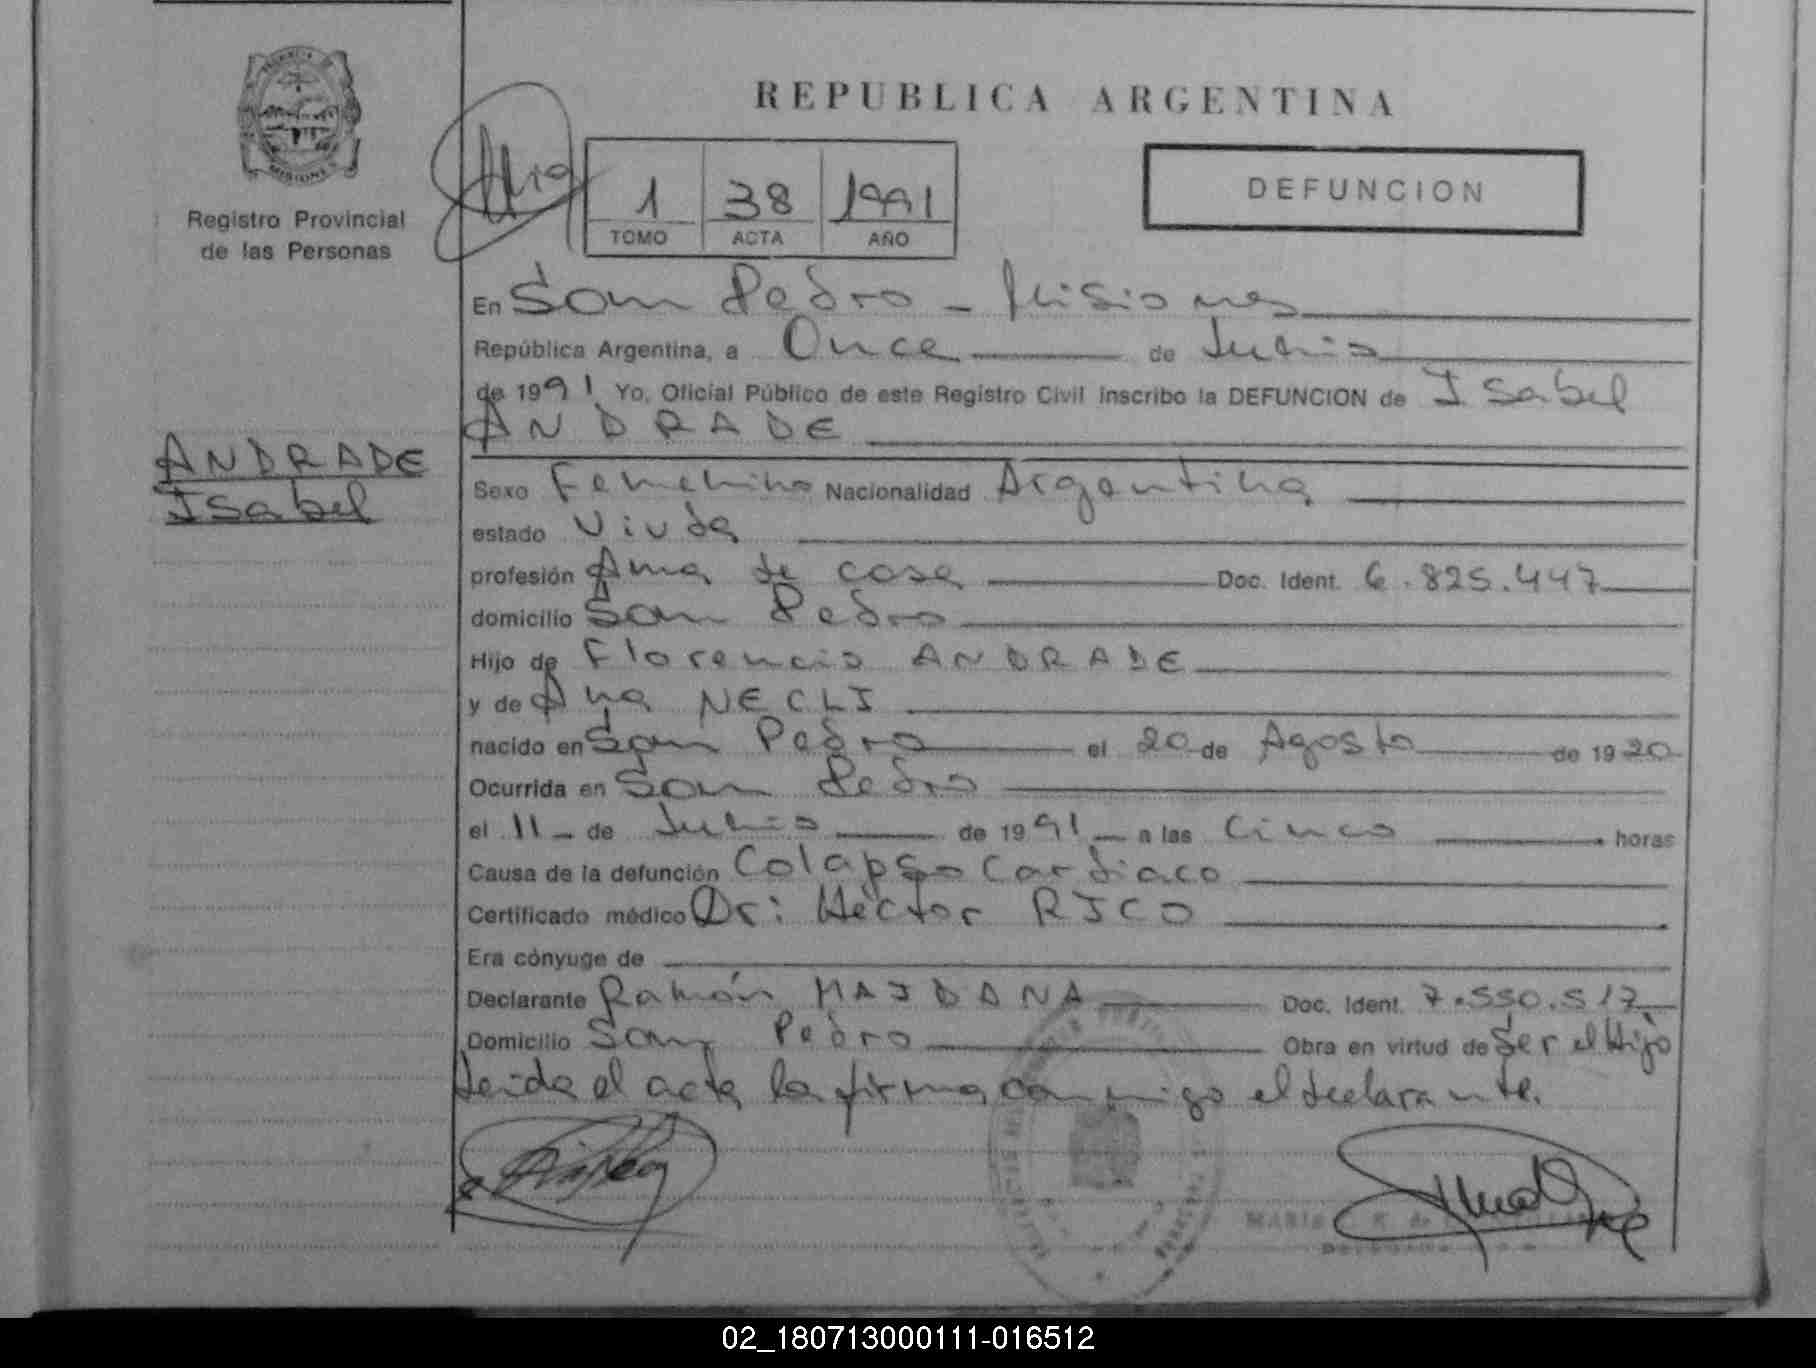 REPUBLICA ARGENTINA
PROVINCIA
MISIONES
Registro Provincial
de las Personas
1 38 1991
TOMO ACTA AÑO
DEFUNCION
En San Pedro - Misiones
República Argentina, a Once de Junio
de 1991 Yo, Oficial Público de este Registro Civil inscribo la DEFUNCION de Isabel
ANDRADE
ANDRADE
Isabel
Sexo Femenino Nacionalidad Argentina
estado Viuda
profesión Ama de casa Doc. Ident. 6.825.447
domicilio San Pedro
Hijo de Florencio ANDRADE
y de Ana NECLI
nacido en San Pedro el 20 de Agosto de 1920
Ocurrida en San Pedro
el 11 - de Junio de 1991 - a las Cinco horas
Causa de la defunción Colapso Cardiaco
Certificado médico Dr: Héctor RICO
Era cónyuge de
Declarante Ramón MAIDANA Doc. Ident. 7.550.517
Domicilio San Pedro Obra en virtud de Ser el Hijo
Leida el acta la firma conmigo el declarante.
MARIA
02_180713000111-016512